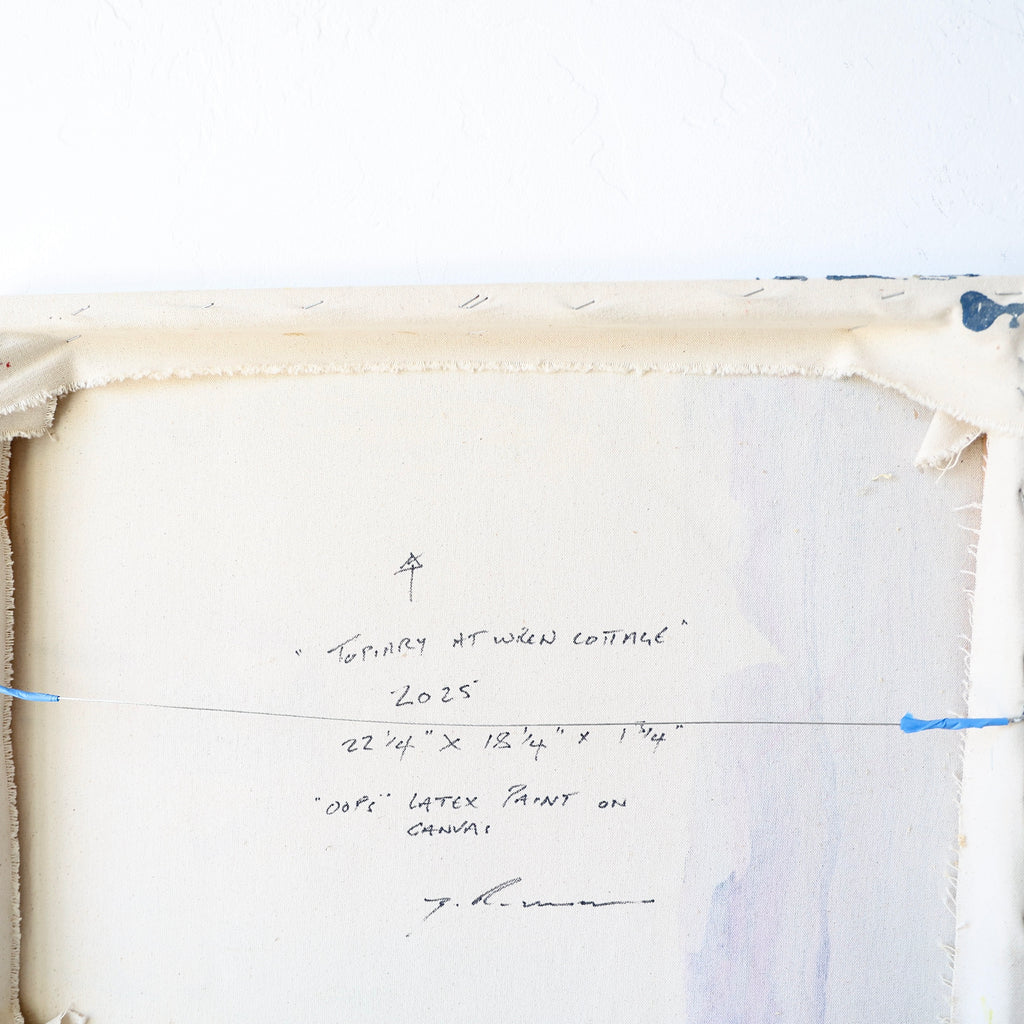 "TOPIARY AT WREN COTTAGE"
2025
22 1/4" X 18 1/4" x 1 3/4"
"OOPS" LATEX PAINT ON
CANVAS